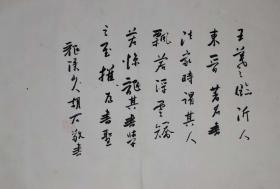 王羲之臨沂人
東晉著名書
法家時謂其人
飄若浮雲矯
若驚龍其書
之至推為書聖
溪 人胡 敬書